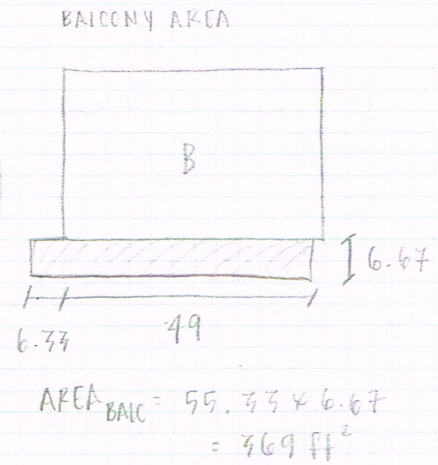 BALCONY AREA
B
6.67
6.33
49
AREA BALC = 55.33 x 6.67
= 369 ft²